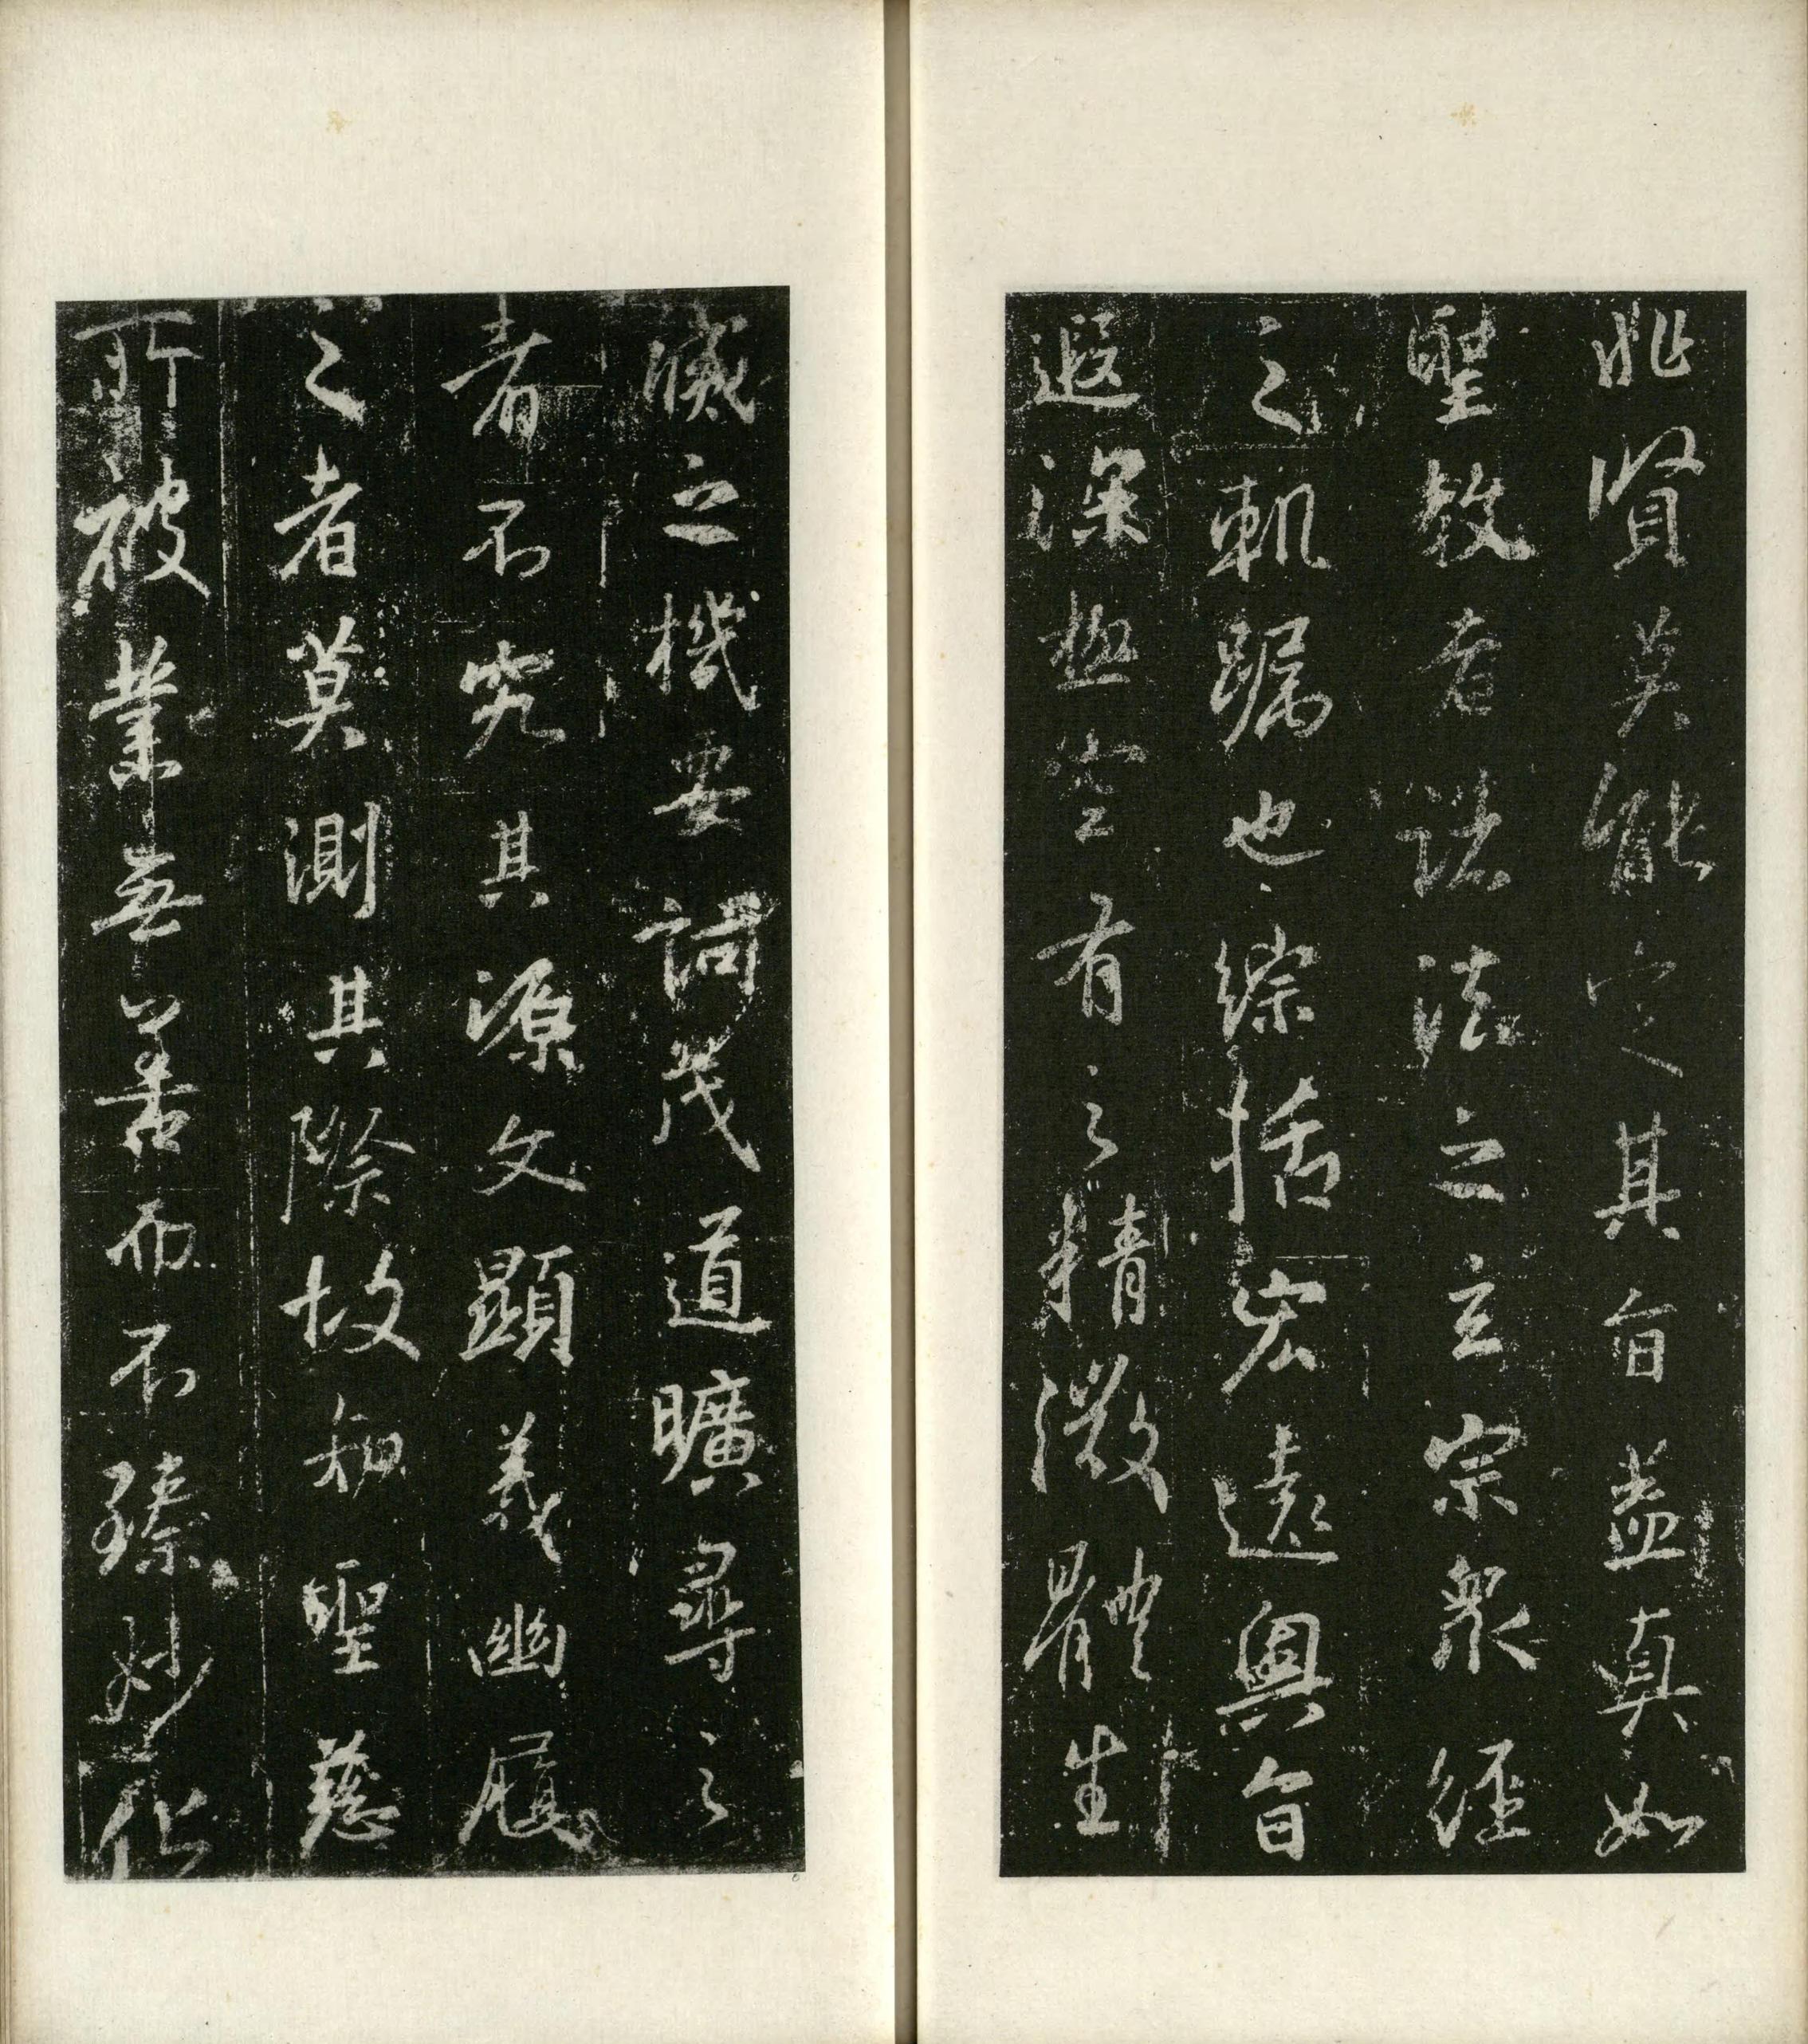 非賢莫能定其旨盖真如
聖教者諸法之玄宗衆經
之軌躅也綜括宏遠奧旨
遐深極空有之精微體生
滅之機要詞茂道曠尋之
者不究其源文顯義幽履
之者莫測其際故知聖慈
所被業無善而不臻妙化